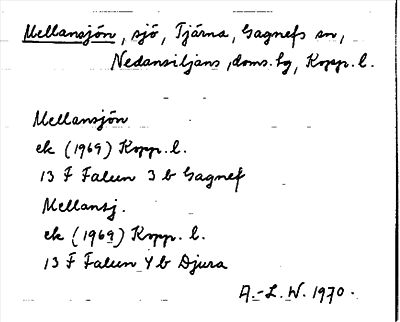 Mellansjön, sjö, Tjärna, Gagnefs sn,
Nedansiljans, doms. hg, Kopp. l.
Mellansjön
ek (1969) Kopp. l.
13 F Falun 3 b Gagnef
Mellansj.
ek (1969) Kopp. l.
13 F Falun 4 b Djura
A.-L. W. 1970.